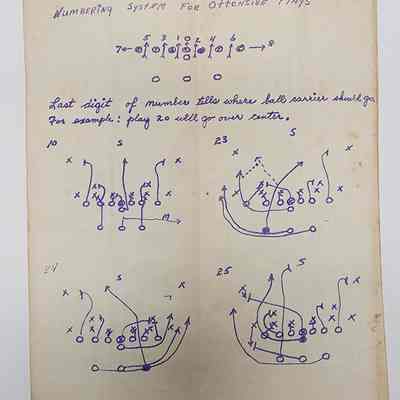 Numbering System For Offensive Plays
5 3 1 0 2 4 6
7 8
Last digit of number tells where ball carrier should go.
For example: play 20 will go over center.
10 S 23 S
X X X X
24 S 25 S
X X